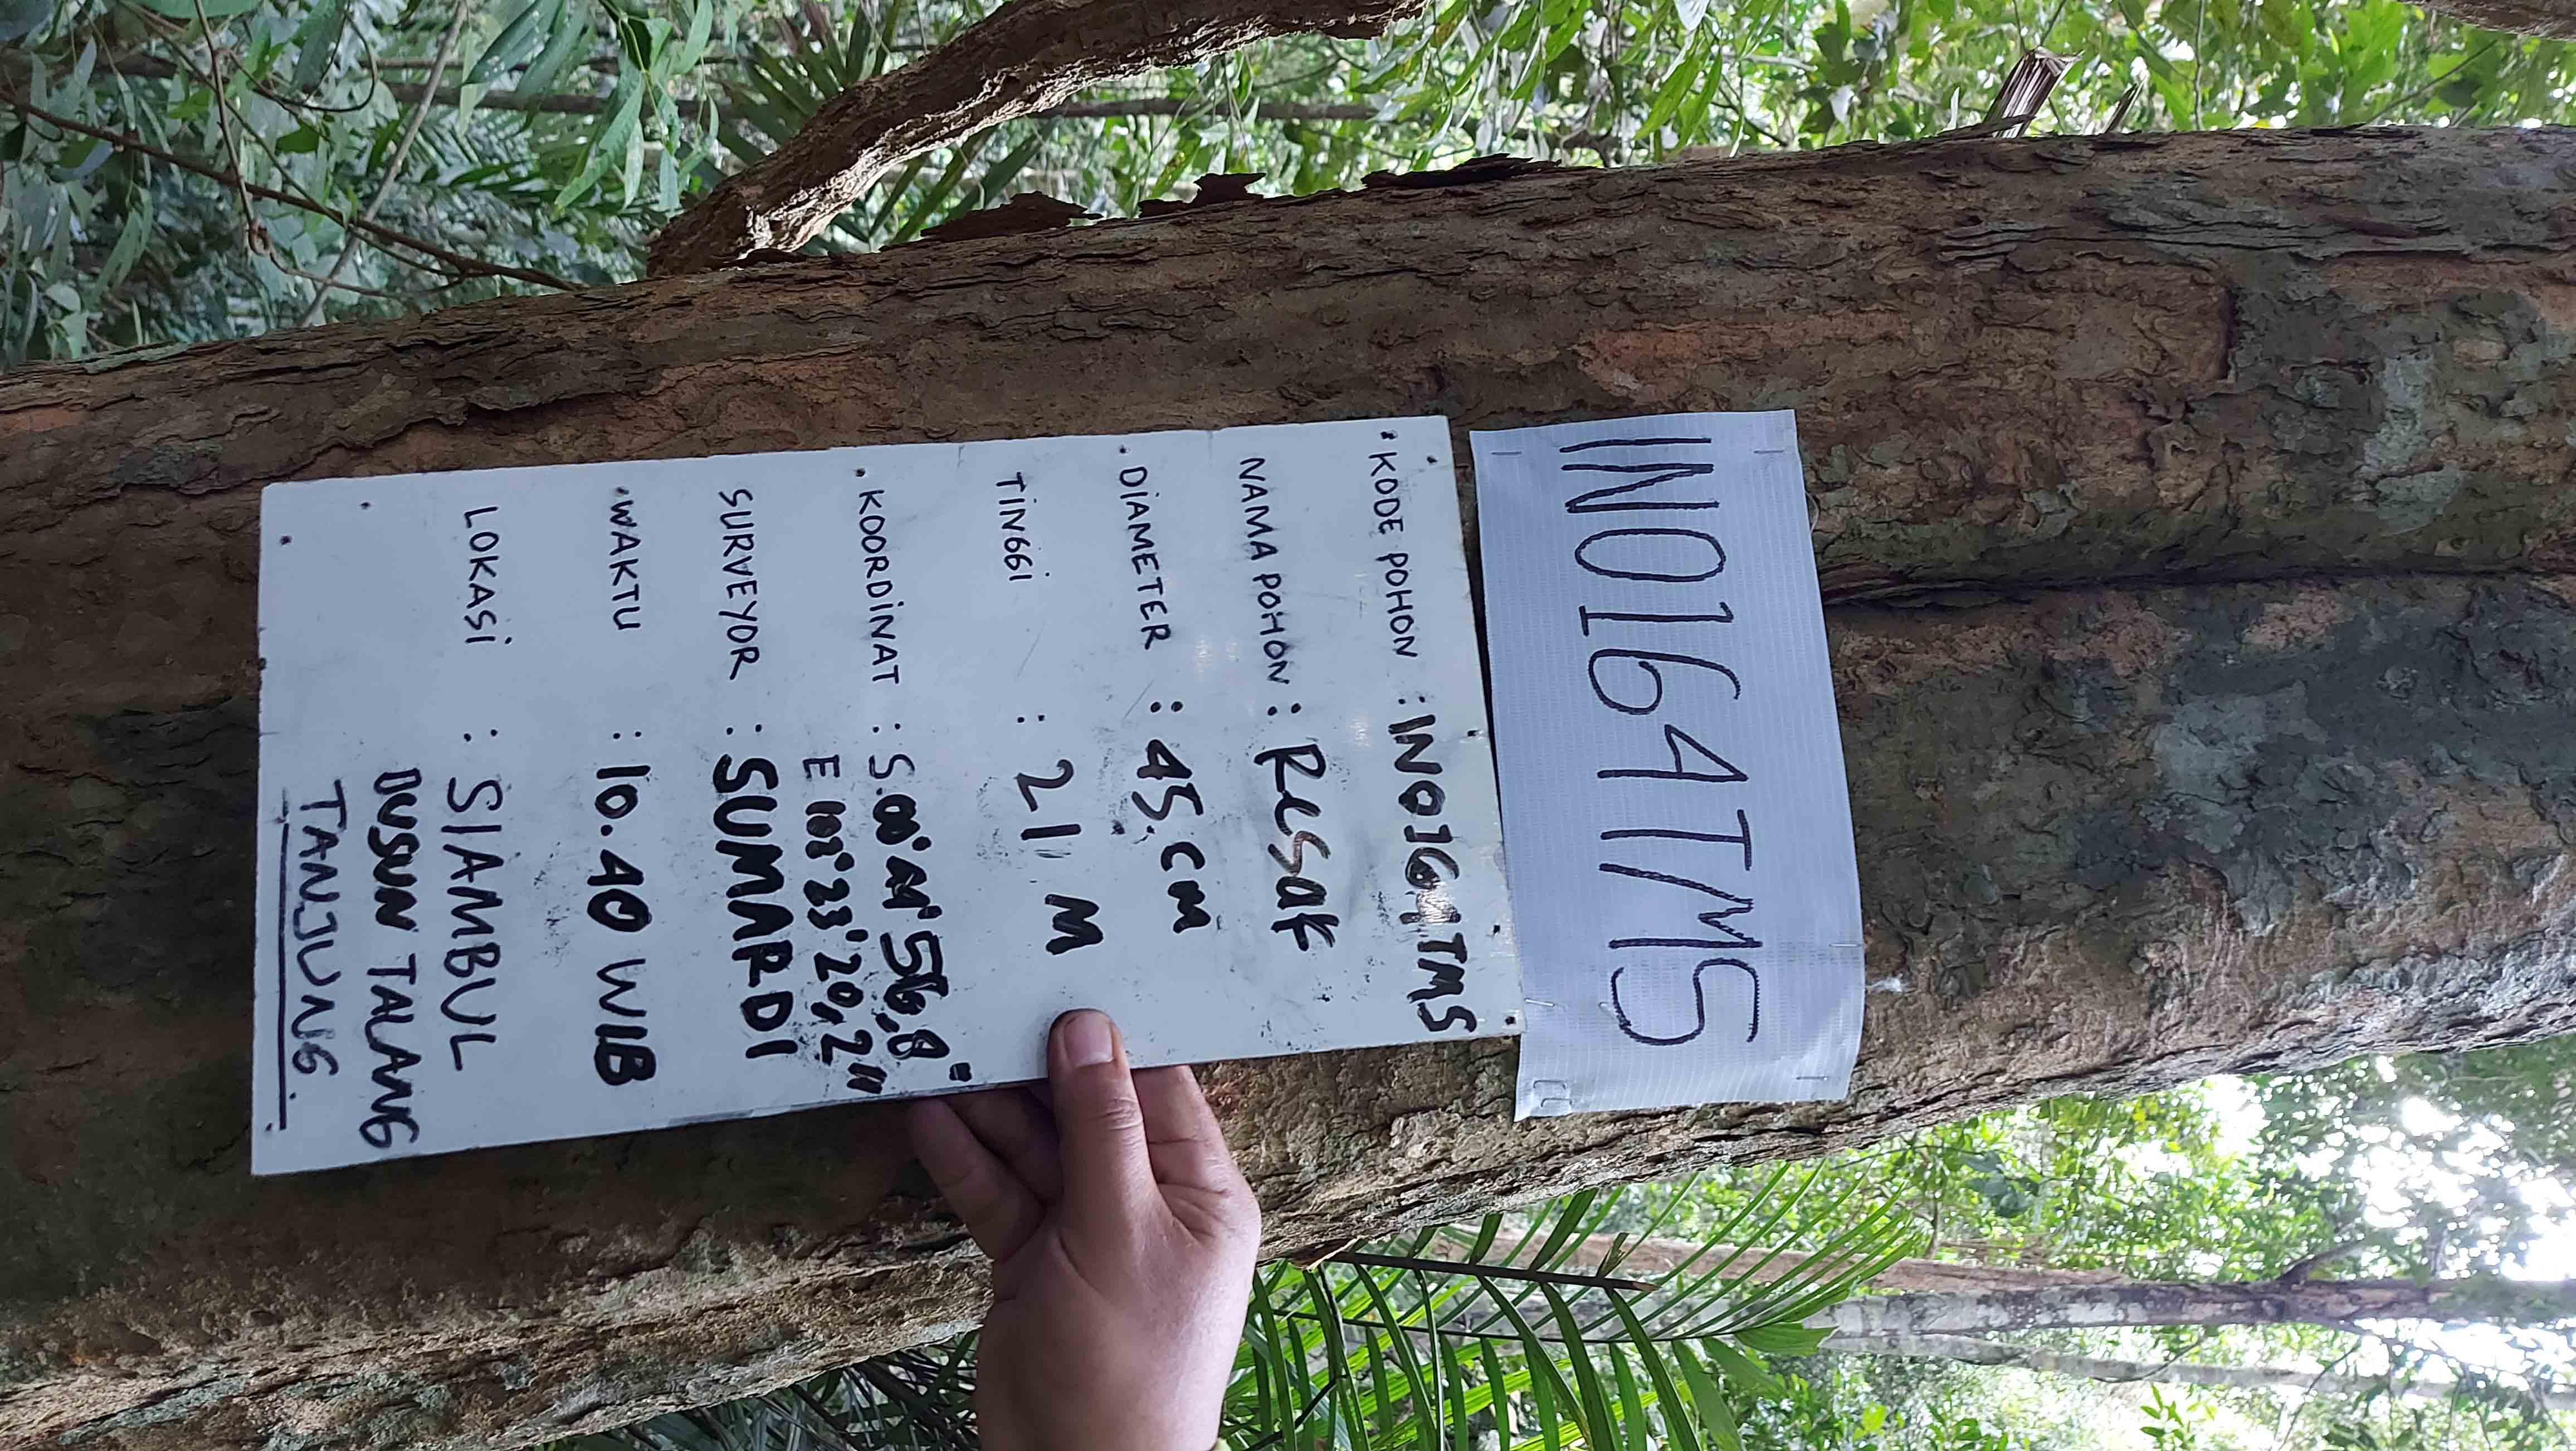 IN0164TMS
• KODE POHON : IN0164TMS
NAMA POHON : Resak
• DIAMETER : 45 cm
TINGGI : 21 M
• KOORDINAT : S.00° 44' 56,8"
E 102° 23' 20,2"
SURVEYOR : SUMARDI
• WAKTU : 10.40 WIB
LOKASI : SIAMBUL
DUSUN TALANG
TANJUNG